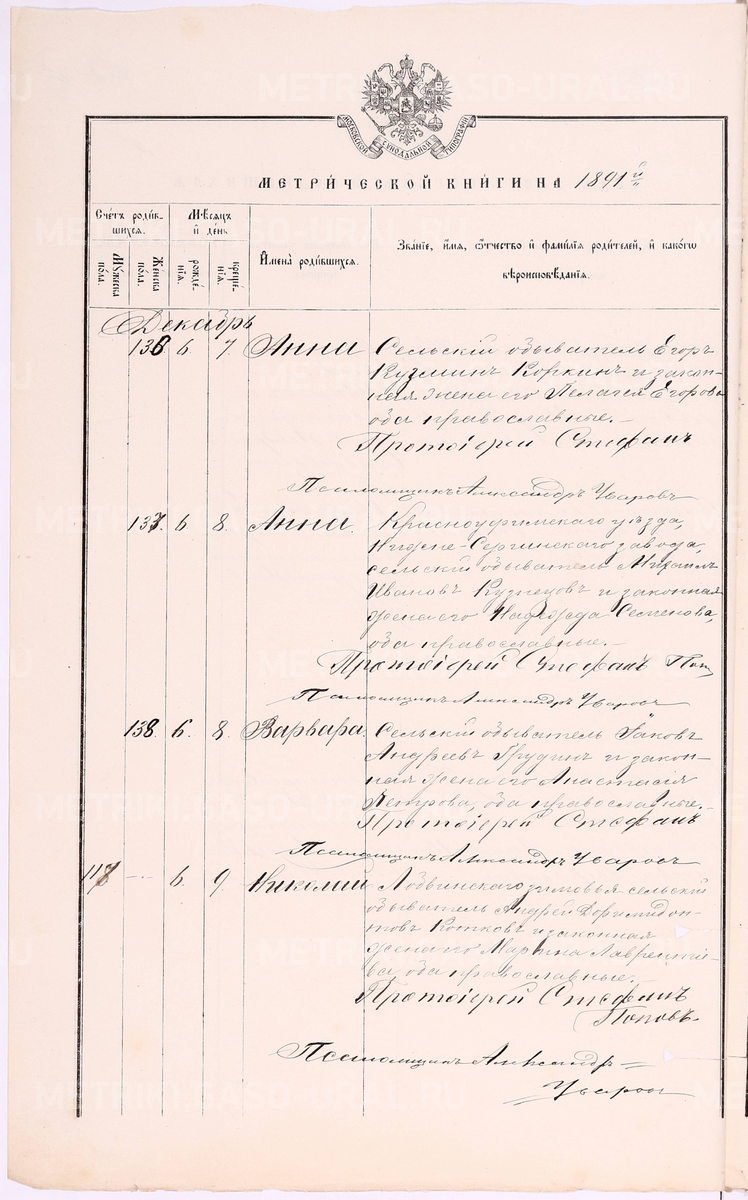 МОСКОВСКОЙ СѴНОДАЛЬНОЙ ТИПОГРАФІИ
МЕТРИ́ЧЕСКОЙ КНИ́ГИ НА 1891й
Сче́тъ роди́в-
шихся.
Му́жеска
по́ла.
Же́нска
по́ла.
Мѣ́сяцъ
и҆ де́нь
рожде́-
нїя.
креще́-
нїя.
И҆мена̀ роди́вшихся.
Зва́нїе, и҆́мя, ѻ҆́тчество и҆ фами́лїя роди́телей, и҆ како́гѡ
вѣроисповѣ́данїя.
Декабрь
136 6 7. Анна Сельскій обыватель Егоръ
Кузминъ Коркинъ и закон-
ная жена его Пелагея Егорова
оба православные.
Протоіерей Стефанъ
Псаломщикъ Александръ Уваровъ
137. 6. 8. Анна. Красноуфимскаго уѣзда,
Нижне-Сергинскаго завода,
сельскій обыватель Михаилъ
Ивановъ Кузнецовъ и законная
жена его Надежда Семенова,
оба православные.
Протоіерей Стефанъ Поп
Псаломщикъ Александръ Уваровъ
138. 6. 8. Варвара. Сельскій обыватель Яковъ
Андреевъ Грудинъ и закон-
ная жена его Анастасія
Петрова, оба православные.
Протоіерей Стефанъ
Псаломщикъ Александръ Уваровъ
118 — 6. 9. Николай Лобвинскаго зимовья сельскій
обыватель Андрей Доримидон-
товъ Котковъ и законная
жена его Марѳина Лаврентіе-
ва, оба православные.
Протоіерей Стефанъ
Поповъ.
Псаломщикъ Александръ
Уваровъ
METRIKI.GASO-URAL.RU